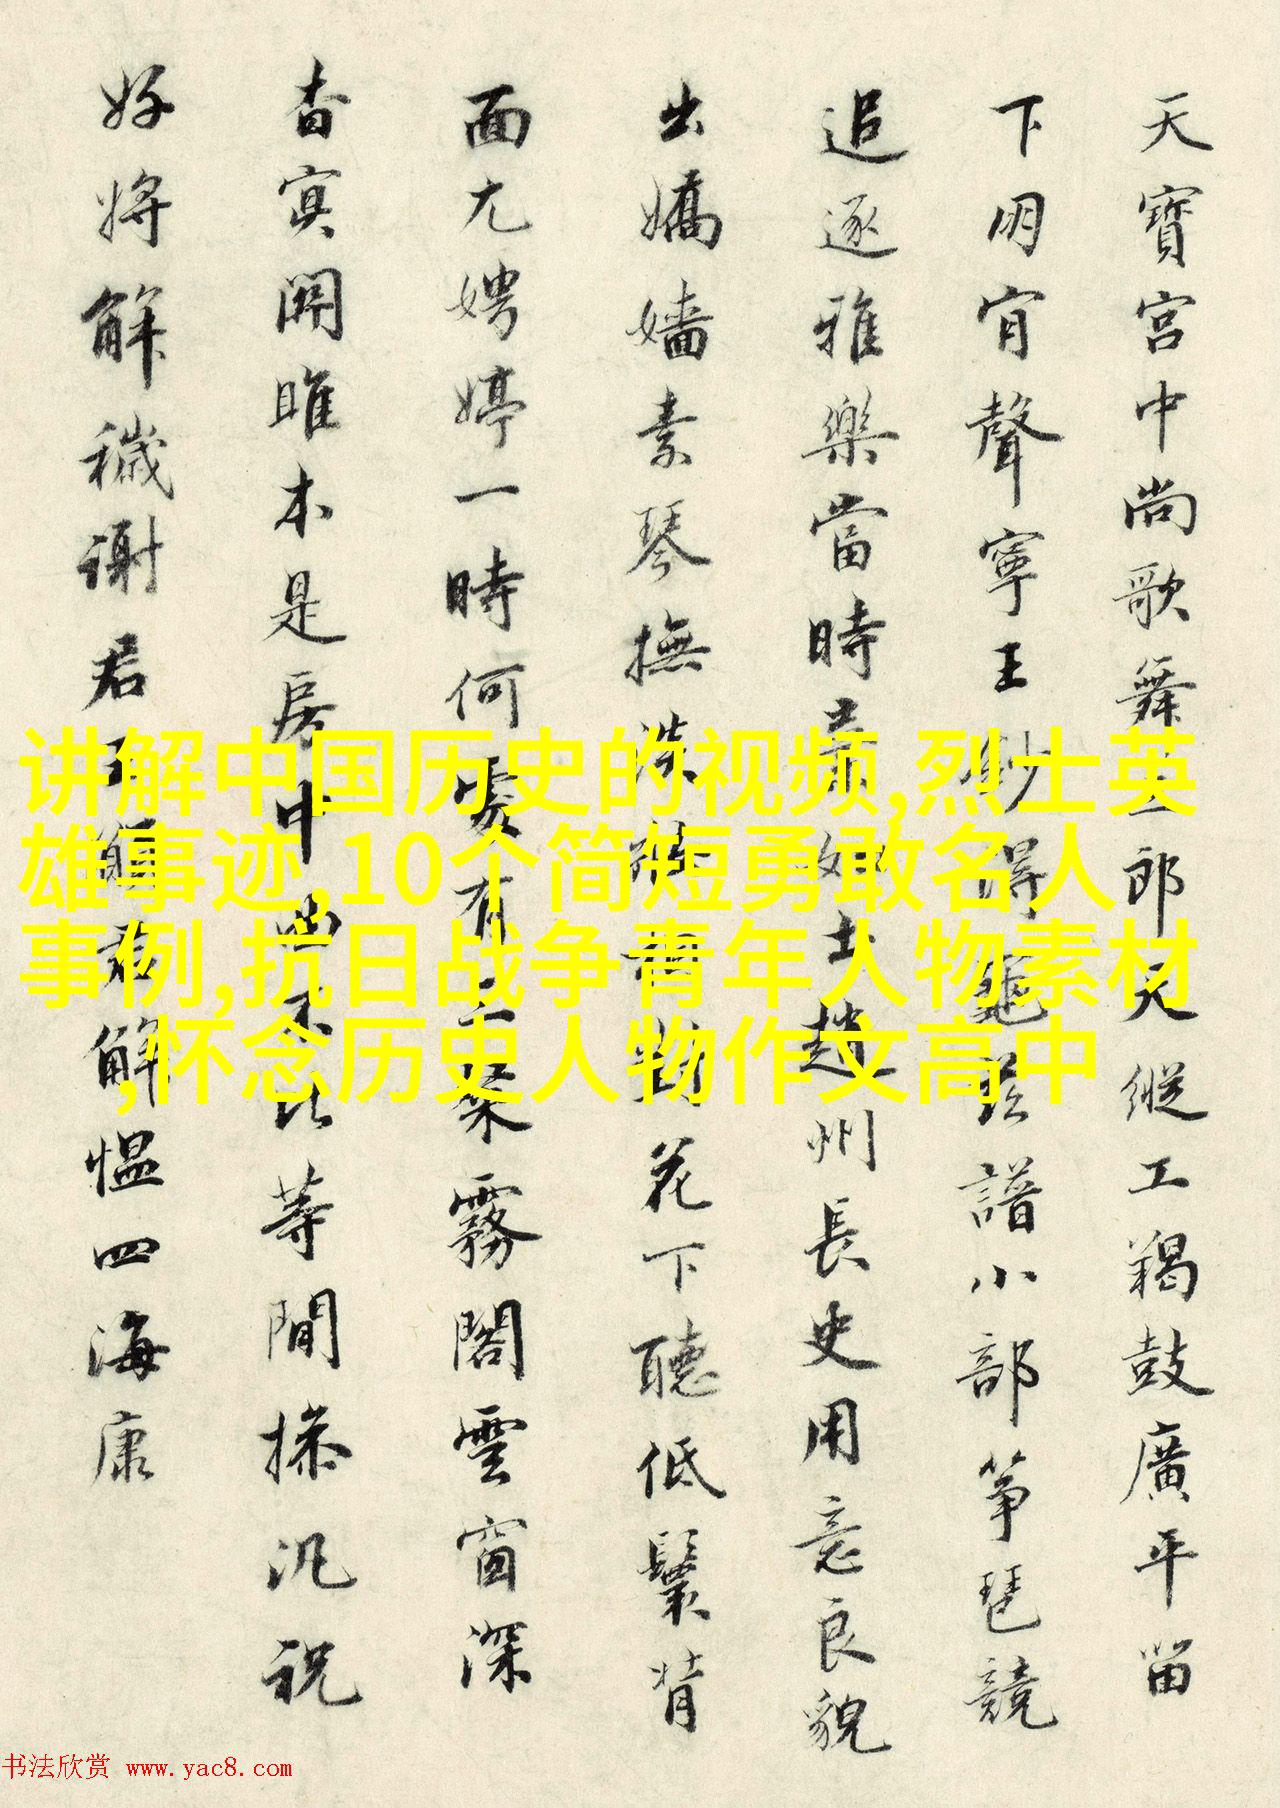 天寶宮中尚歌舞三郎天縱工羯鼓廣平留
下明聲寧王玅得龜茲譜小部箏琶競
追逐雅樂當時如土趙州長史用意良貌
出嬌嬙素琴撫對花下聽低鬟背
面尤娉婷一時何處有琴霧閣雲窗深
杳冥關雎本是房中曲不比等閒操汎祝
好將解穢謝君王君解慍四海康
讲解中国历史的视频,烈士英
雄事迹,10个简短勇敢名人
事例,抗日战争青年人物素材
,怀念历史人物作文高中
书法欣赏 www.yac8.com